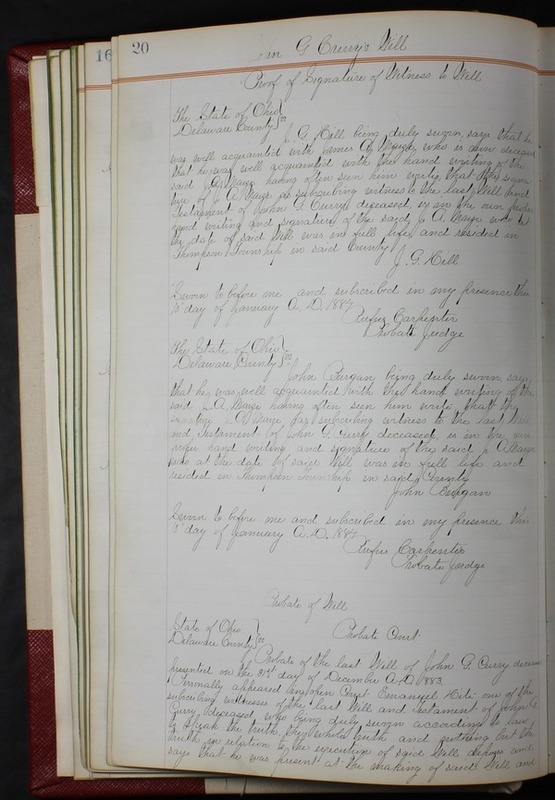 16
20
John G Curry's Will
Proof of Signature of Witness to Will
The State of Ohio
Delaware County } ss
J. G. Hill being duly sworn, says that he
was well acquainted with James A. Maize who is now deceased
that he was well acquainted with the hand writing of the
said J. A. Maize having often seen him write, that the signa
ture of J. A. Maize as subscribing witness to the last Will and
Testament of John G Curry deceased, is in the own proper
hand writing and signature of the said J. A. Maize who at
the date of said Will was in full life and resided in
Thompson Township in said County
J. G. Hill
Sworn to before me and subscribed in my presence this
day of January A. D. 1884
Rufus Carpenter
Probate Judge
The State of Ohio
Delaware County } ss
John Burgan being duly sworn, says
that he was well acquainted with the hand writing of the
said J. A. Maize having often seen him write that the
signature J. A. Maize as subscribing witness to the last Will
and Testament of John G Curry deceased, is in the own
proper hand writing and signature of the said J. A. Maize
who at the date of said Will was in full life and
resided in Thompson Township in said County
John Burgan
Sworn to before me and subscribed in my presence this
day of January A. D. 1884
Rufus Carpenter
Probate Judge
Probate of Will
State of Ohio
Delaware County } ss
Probate Court
Probate of the last Will of John G. Curry deceased
presented on the 31st day of December A. D. 1883
Personally appeared in open Court Emanuel one of the
subscribing witnesses of the last Will and testament of John G
Curry deceased who being duly sworn according to law
to speak the truth, the whole truth and nothing but the
truth in relation to the execution of said Will deposes and
says that he was present at the making of said Will and